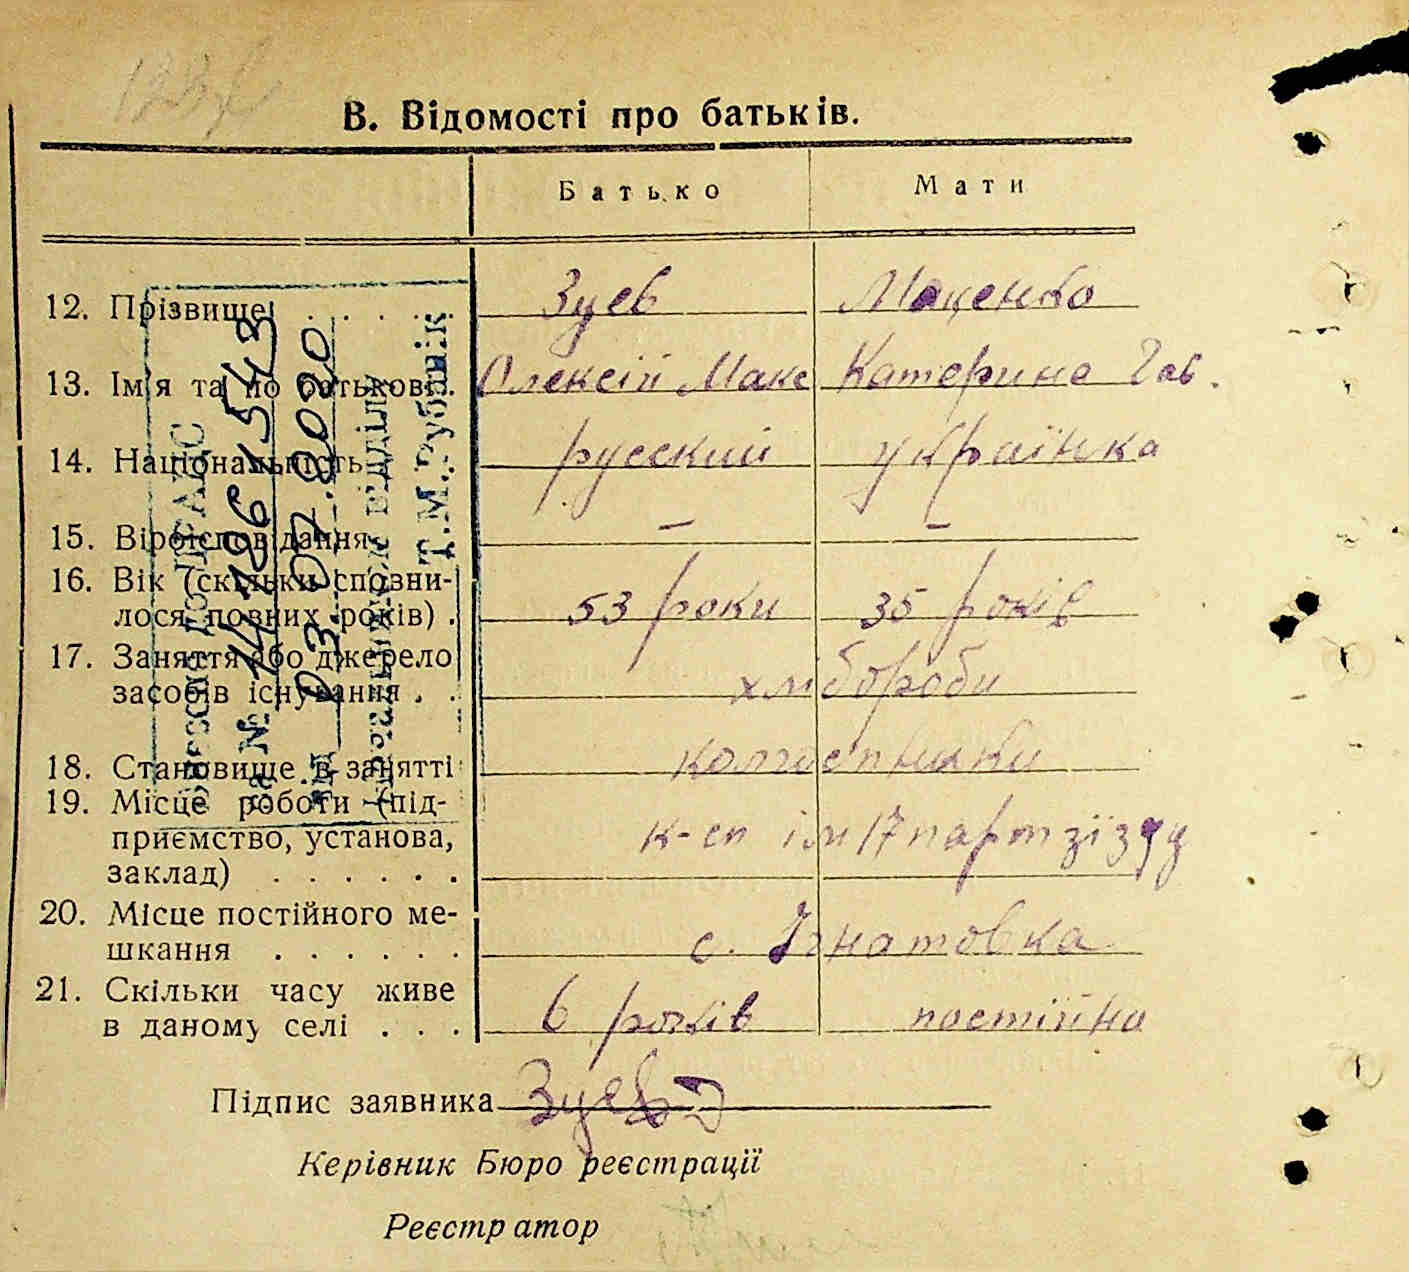 В. Відомості про батьків.
Батько Мати
12. Прізвище . . . . . Зуев Маценко
13. Ім'я та по батькові . Олексій Макс Катерина Гав.
14. Національність русский українка
15. Віросповідання — —
16. Вік (скільки сповни-
лося повних років) . 53 роки 35 років
17. Заняття або джерело
засобів існування . . хлібороби
18. Становище в занятті колгоспники
19. Місце роботи (під-
приємство, установа,
заклад) . . . . . . к-сп ім 17 парт зїзду
20. Місце постійного ме-
шкання . . . . . . с. Ігнатовка
21. Скільки часу живе
в даному селі . . . 6 років постійно
Підпис заявника Зуев
Керівник Бюро реєстрації
Реєстратор
ДРАЦС
за №
від 03.07.2020
відділу
Т.М.Рубанік